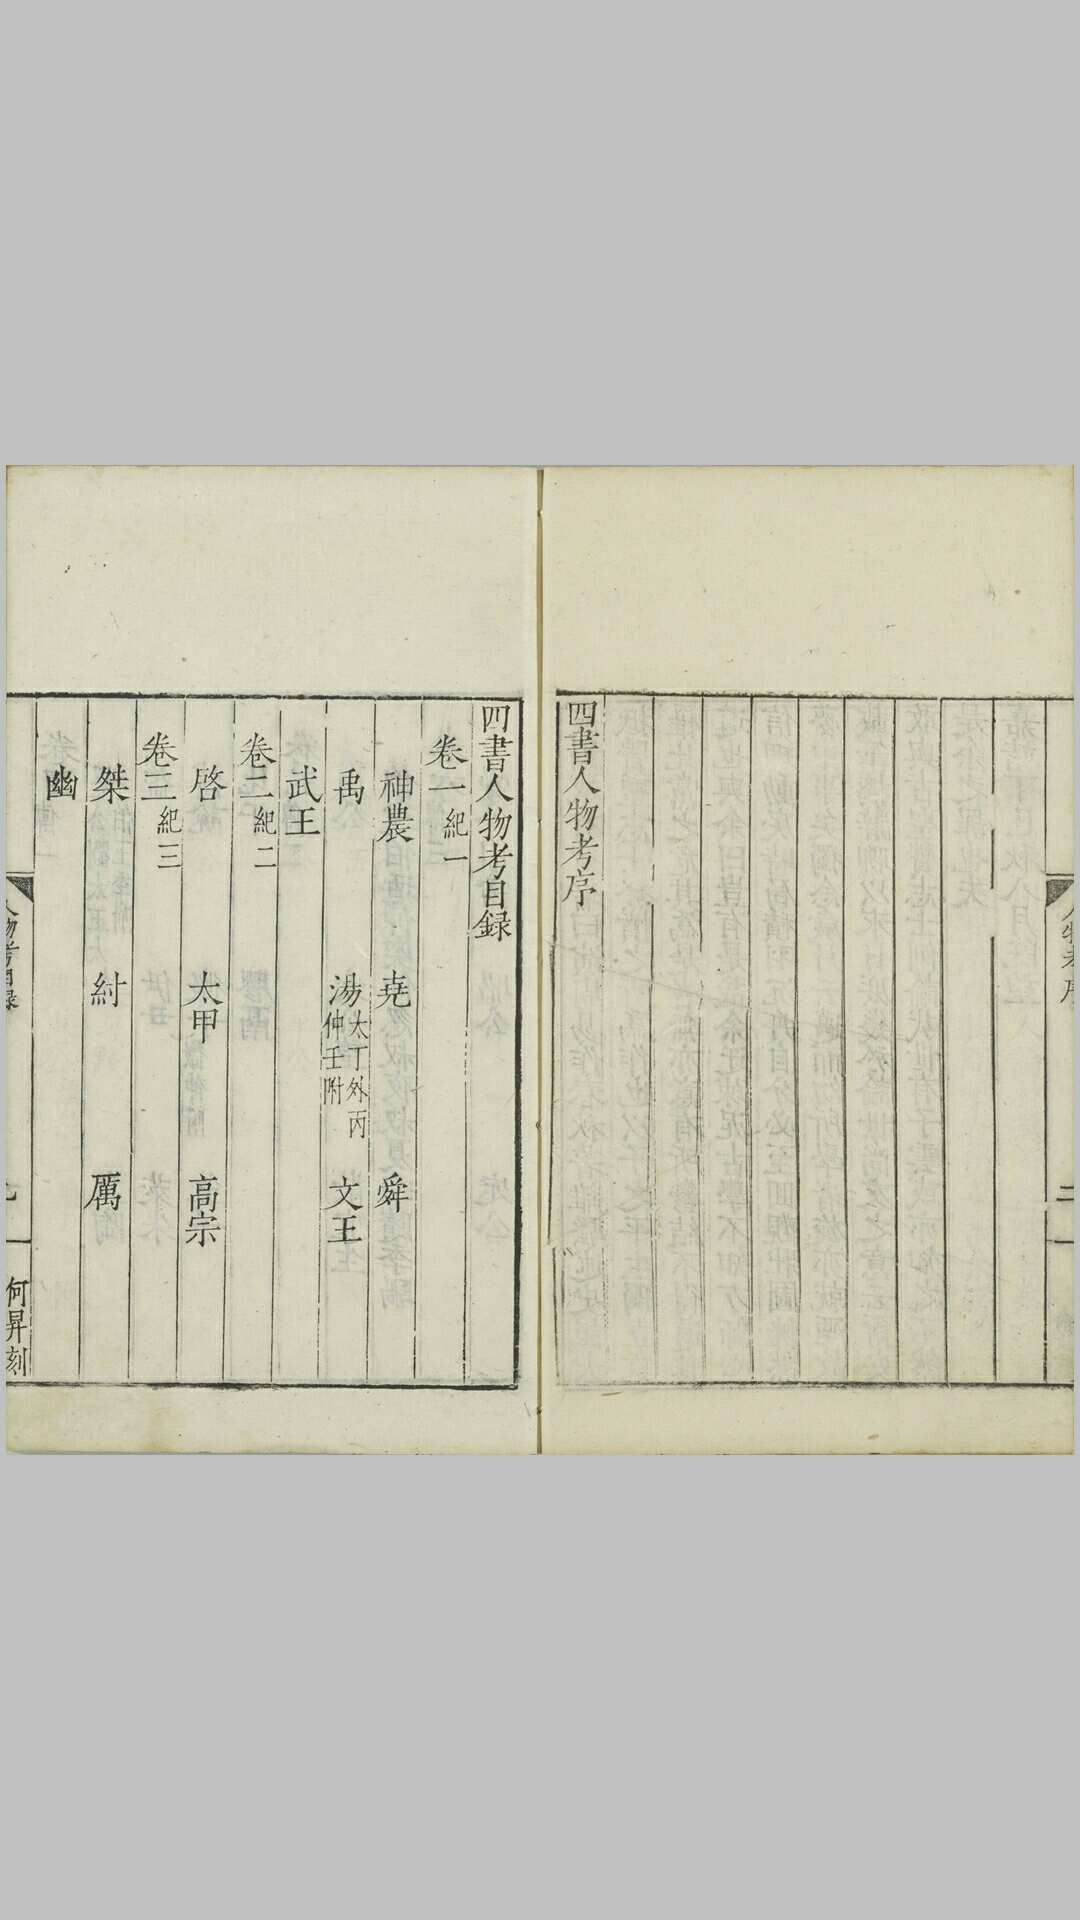 人物考序
二
四書人物考序
四書人物考目録
卷一 紀一
神農 堯 舜
禹 湯 太丁外丙仲壬附 文王
武王
卷二 紀二
啓 太甲 高宗
卷三 紀三
桀 紂 厲
幽
人物考目録
何昇刻